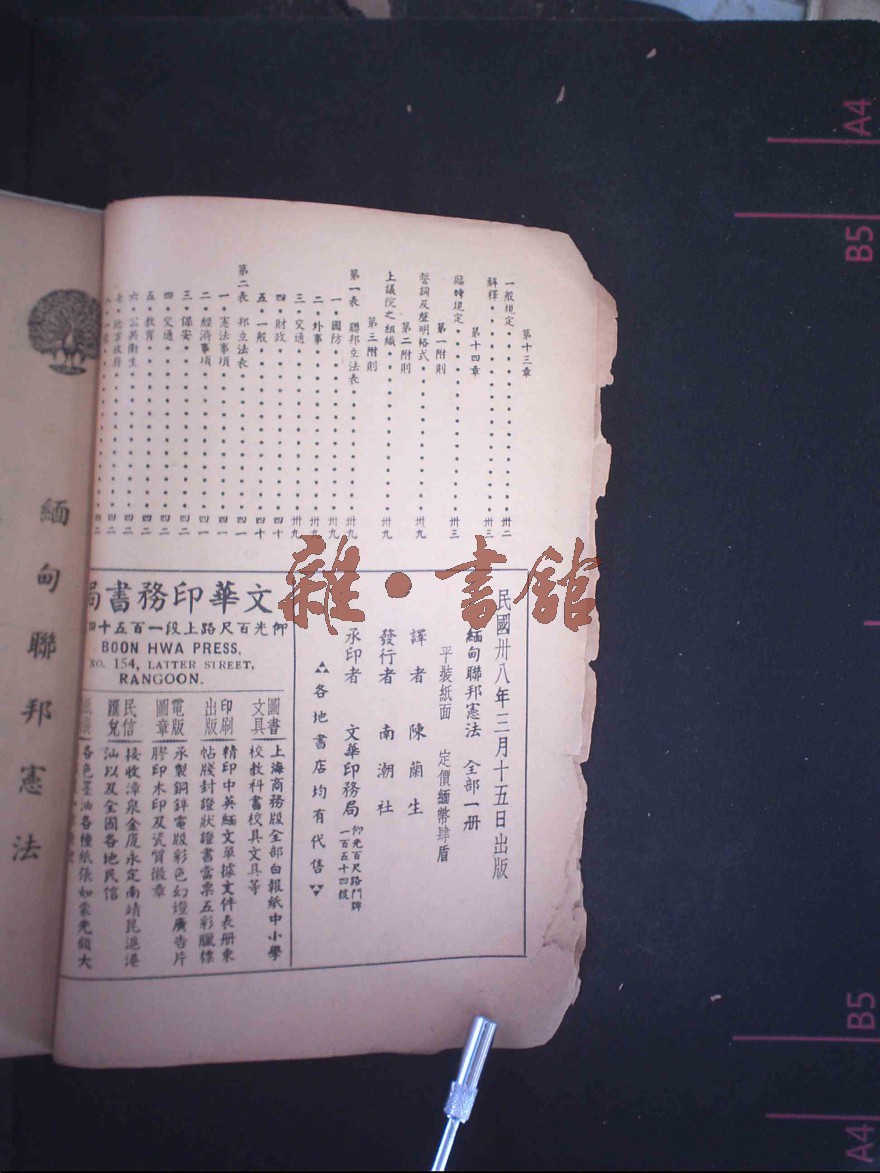 第十三章
一般規定 卅二
解釋 卅三
第十四章
臨時規定 卅三
第一附則
誓詞及聲明格式 卅九
第二附則
上議院之組織 卅九
第三附則
第一表 聯邦立法表 卅九
一・國防 卅九
二・外事 卅九
三・交通 卅九
四・財政 四十
五・一般 四十
第二表 邦立法表 四一
一・憲法事項 四一
二・經濟事項 四一
三・保安 四二
四・交通 四二
五・教育 四二
六・公共衛生 四二
七・地方政府 四二
民國卅八年三月十五日出版
緬甸聯邦憲法 全部一册
平裝紙面 定價緬幣肆盾
譯者 陳蘭生
發行者 南潮社
承印者 文華印務局
仰光百尺路門牌
一百五十四號
各地書店均有代售
文華印務書局
仰光百尺路上段一百五十四
BOON HWA PRESS,
NO. 154, LATTER STREET,
RANGOON.
圖書
文具
上海商務版全部白報紙中小學
校教科書校具文具等
印刷
出版
精印中英緬文單據文件表册柬
帖牋封證狀證書當票五彩臘條
電版
圖章
承製銅鋅電版彩色幻燈廣告片
膠印木印及瓷質徽章
民信
匯兌
接收漳泉金廈永定南靖昆滬港
汕以及全國各地民信
各色墨油各種紙張如蒙光顧大
緬甸聯邦憲法
雜・書館
A4
B5
B5
A4